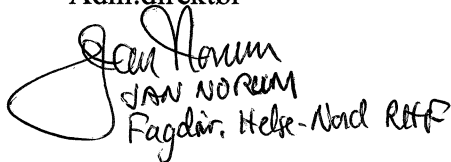 Adm.direktør
Jan Norum
JAN NORUM
Fagdir. Helse-Nord RHF